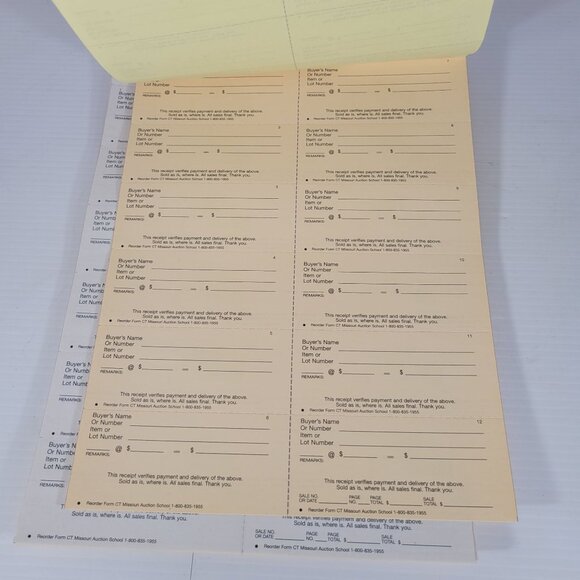 Buyer's Name
Or Number
Item or
Lot Number
@ $ — $
REMARKS:
This receipt verifies payment and delivery of the above.
Sold as is, where is. All sales final. Thank you.
Reorder Form CT Missouri Auction School 1-800-835-1955
Buyer's Name
Or Number
Item or
Lot Number
@ $ — $
REMARKS:
This receipt verifies payment and delivery of the above.
Sold as is, where is. All sales final. Thank you.
Reorder Form CT Missouri Auction School 1-800-835-1955
3
Buyer's Name
Or Number
Item or
Lot Number
@ $ — $
REMARKS:
This receipt verifies payment and delivery of the above.
Sold as is, where is. All sales final. Thank you.
Reorder Form CT Missouri Auction School 1-800-835-1955
4
Buyer's Name
Or Number
Item or
Lot Number
@ $ — $
REMARKS:
This receipt verifies payment and delivery of the above.
Sold as is, where is. All sales final. Thank you.
Reorder Form CT Missouri Auction School 1-800-835-1955
5
Buyer's Name
Or Number
Item or
Lot Number
@ $ — $
REMARKS:
This receipt verifies payment and delivery of the above.
Sold as is, where is. All sales final. Thank you.
Reorder Form CT Missouri Auction School 1-800-835-1955
6
Buyer's Name
Or Number
Item or
Lot Number
@ $ — $
REMARKS:
This receipt verifies payment and delivery of the above.
Sold as is, where is. All sales final. Thank you.
Reorder Form CT Missouri Auction School 1-800-835-1955
7
Buyer's Name
Or Number
Item or
Lot Number
@ $ — $
REMARKS:
This receipt verifies payment and delivery of the above.
Sold as is, where is. All sales final. Thank you.
Reorder Form CT Missouri Auction School 1-800-835-1955
8
Buyer's Name
Or Number
Item or
Lot Number
@ $ — $
REMARKS:
This receipt verifies payment and delivery of the above.
Sold as is, where is. All sales final. Thank you.
Reorder Form CT Missouri Auction School 1-800-835-1955
9
Buyer's Name
Or Number
Item or
Lot Number
@ $ — $
REMARKS:
This receipt verifies payment and delivery of the above.
Sold as is, where is. All sales final. Thank you.
Reorder Form CT Missouri Auction School 1-800-835-1955
10
Buyer's Name
Or Number
Item or
Lot Number
@ $ — $
REMARKS:
This receipt verifies payment and delivery of the above.
Sold as is, where is. All sales final. Thank you.
Reorder Form CT Missouri Auction School 1-800-835-1955
11
Buyer's Name
Or Number
Item or
Lot Number
@ $ — $
REMARKS:
This receipt verifies payment and delivery of the above.
Sold as is, where is. All sales final. Thank you.
Reorder Form CT Missouri Auction School 1-800-835-1955
12
Buyer's Name
Or Number
Item or
Lot Number
@ $ — $
REMARKS:
This receipt verifies payment and delivery of the above.
Sold as is, where is. All sales final. Thank you.
SALE NO. PAGE PAGE SALE
OR DATE NO. TOTAL $ TOTAL $
Reorder Form CT Missouri Auction School 1-800-835-1955
Sold as is, where is. All sales final. Thank you.
Reorder Form CT Missouri Auction School 1-800-835-1955
SALE NO. PAGE PAGE SALE
OR DATE NO. TOTAL $ TOTAL $
Reorder Form CT Missouri Auction School 1-800-835-1955